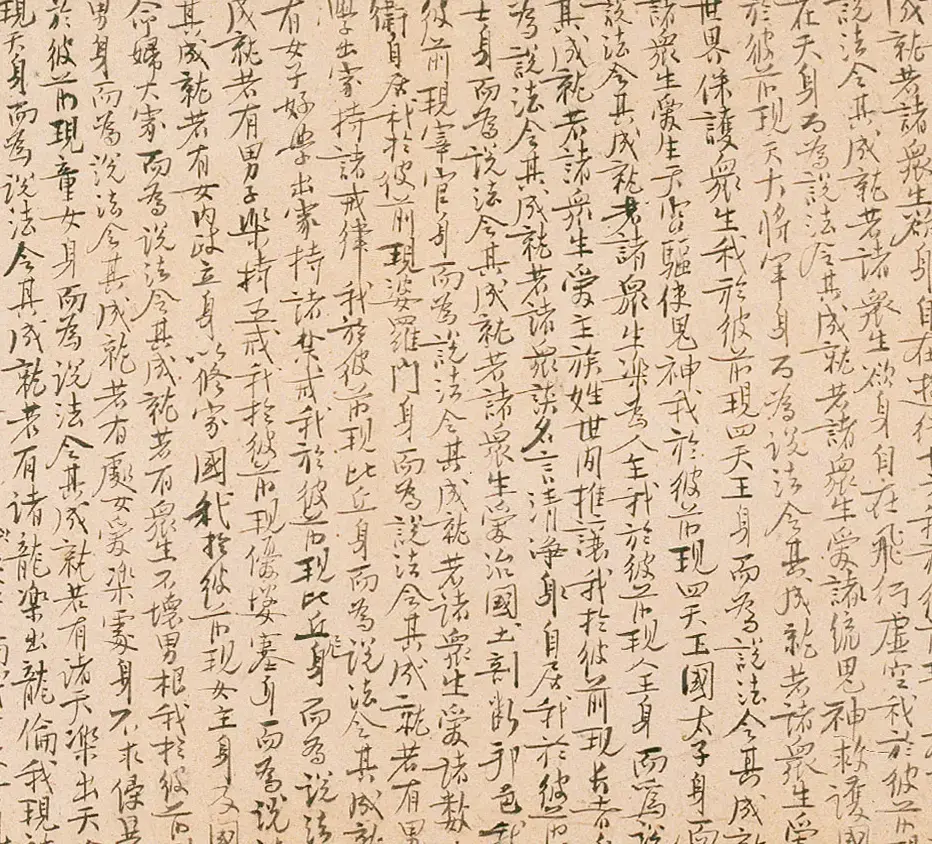 成就若諸衆生欲身自在遊行十方我於彼前
說法令其成就若諸衆生欲身自在飛行虛空我於彼前現
在天身而為說法令其成就若諸衆生愛諸統鬼神救護國
於彼前現天大將軍身而為說法令其成就若諸衆生愛
世界保護衆生我於彼前現四天王身而為說法令其成就
諸衆生愛生天宮驅使鬼神我於彼前現四天王國太子身而
說法令其成就若諸衆生樂為人主我於彼前現人主身而為說
其成就若諸衆生愛主族姓世間推讓我於彼前現長者身
為說法令其成就若諸衆談名言清淨身自居我於彼前
士身而為說法令其成就若諸衆生愛治國土剖斷邦邑我
彼前現宰官身而為說法令其成就若諸衆生愛諸數
衛自居我於彼前現婆羅門身而為說法令其成就若有男
學出家持諸戒律我於彼前現比丘身而為說法令其成就
有女子好學出家持諸禁戒我於彼前現比丘尼身而為說法
成就若有男子樂持五戒我於彼前現優婆塞身而為說
其成就若有女內政立身以修家國我於彼前現女主身及國
命婦大家而為說法令其成就若有衆生不壞男根我於彼前
男身而為說法令其成就若有處女愛樂處身不求侵暴
於彼前現童女身而為說法令其成就若有諸天樂出天
現天身而為說法令其成就若有諸龍樂出龍倫我現